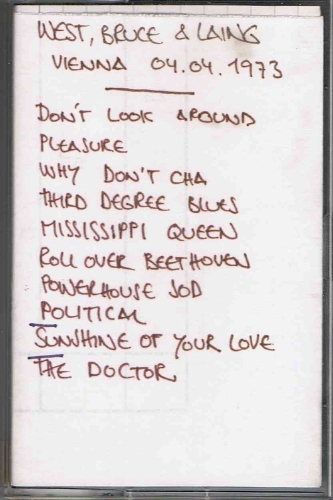 WEST, BRUCE & LAING
VIENNA 04.04.1973
DON'T LOOK AROUND
PLEASURE
WHY DON'T CHA
THIRD DEGREE BLUES
MISSISSIPPI QUEEN
ROLL OVER BEETHOVEN
POWERHOUSE SOD
POLITICAL
SUNSHINE OF YOUR LOVE
THE DOCTOR